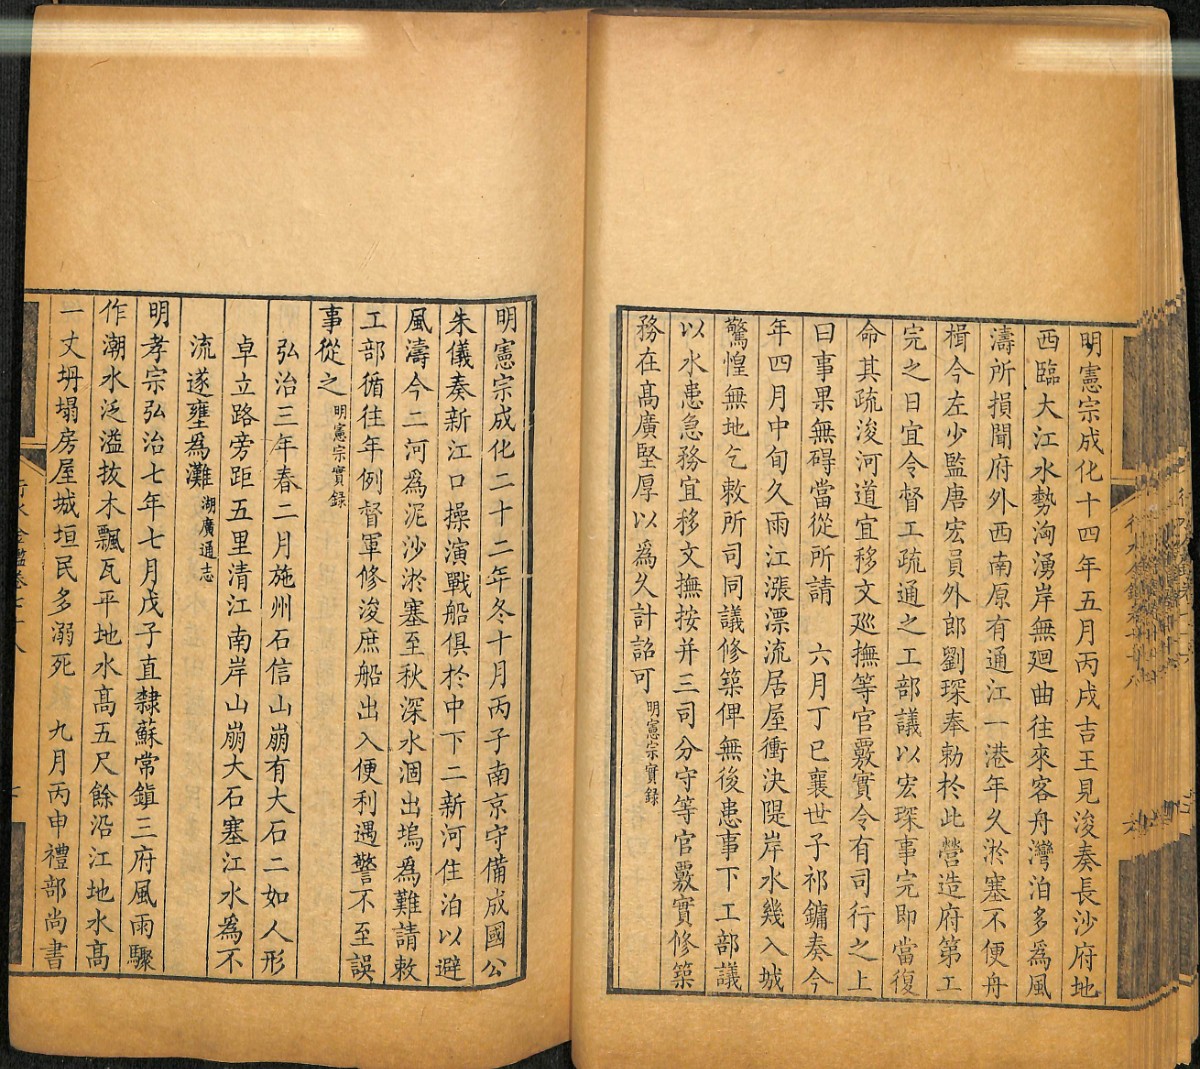 明憲宗成化十四年五月丙戌吉王見浚奏長沙府地
西臨大江水勢洶湧岸無廻曲往來客舟灣泊多爲風
濤所損聞府外西南原有通江一港年久淤塞不便舟
楫今左少監唐宏員外郎劉琛奉勑於此營造府第工
完之日宜令督工疏通之工部議以宏琛事完即當復
命其疏浚河道宜移文廵撫等官覈實令有司行之上
曰事果無碍當從所請　六月丁巳襄世子祁鏞奏今
年四月中旬久雨江漲漂流居屋衝決隄岸水幾入城
驚惶無地乞敕所司同議修築俾無後患事下工部議
以水患急務宜移文撫按并三司分守等官覈實修築
務在高廣堅厚以爲久計詔可明憲宗實錄
明憲宗成化二十二年冬十月丙子南京守備成國公
朱儀奏新江口操演戰船俱於中下二新河住泊以避
風濤今二河爲泥沙淤塞至秋深水涸出塢爲難請敕
工部循往年例督軍修浚庶船出入便利遇警不至誤
事從之明憲宗實錄
弘治三年春二月施州石信山崩有大石二如人形
卓立路旁距五里清江南岸山崩大石塞江水爲不
流遂壅爲灘湖廣通志
明孝宗弘治七年七月戊子直隸蘇常鎭三府風雨驟
作潮水泛溢拔木飄瓦平地水高五尺餘沿江地水高
一丈坍塌房屋城垣民多溺死　九月丙申禮部尚書
行水金鑑卷七十八